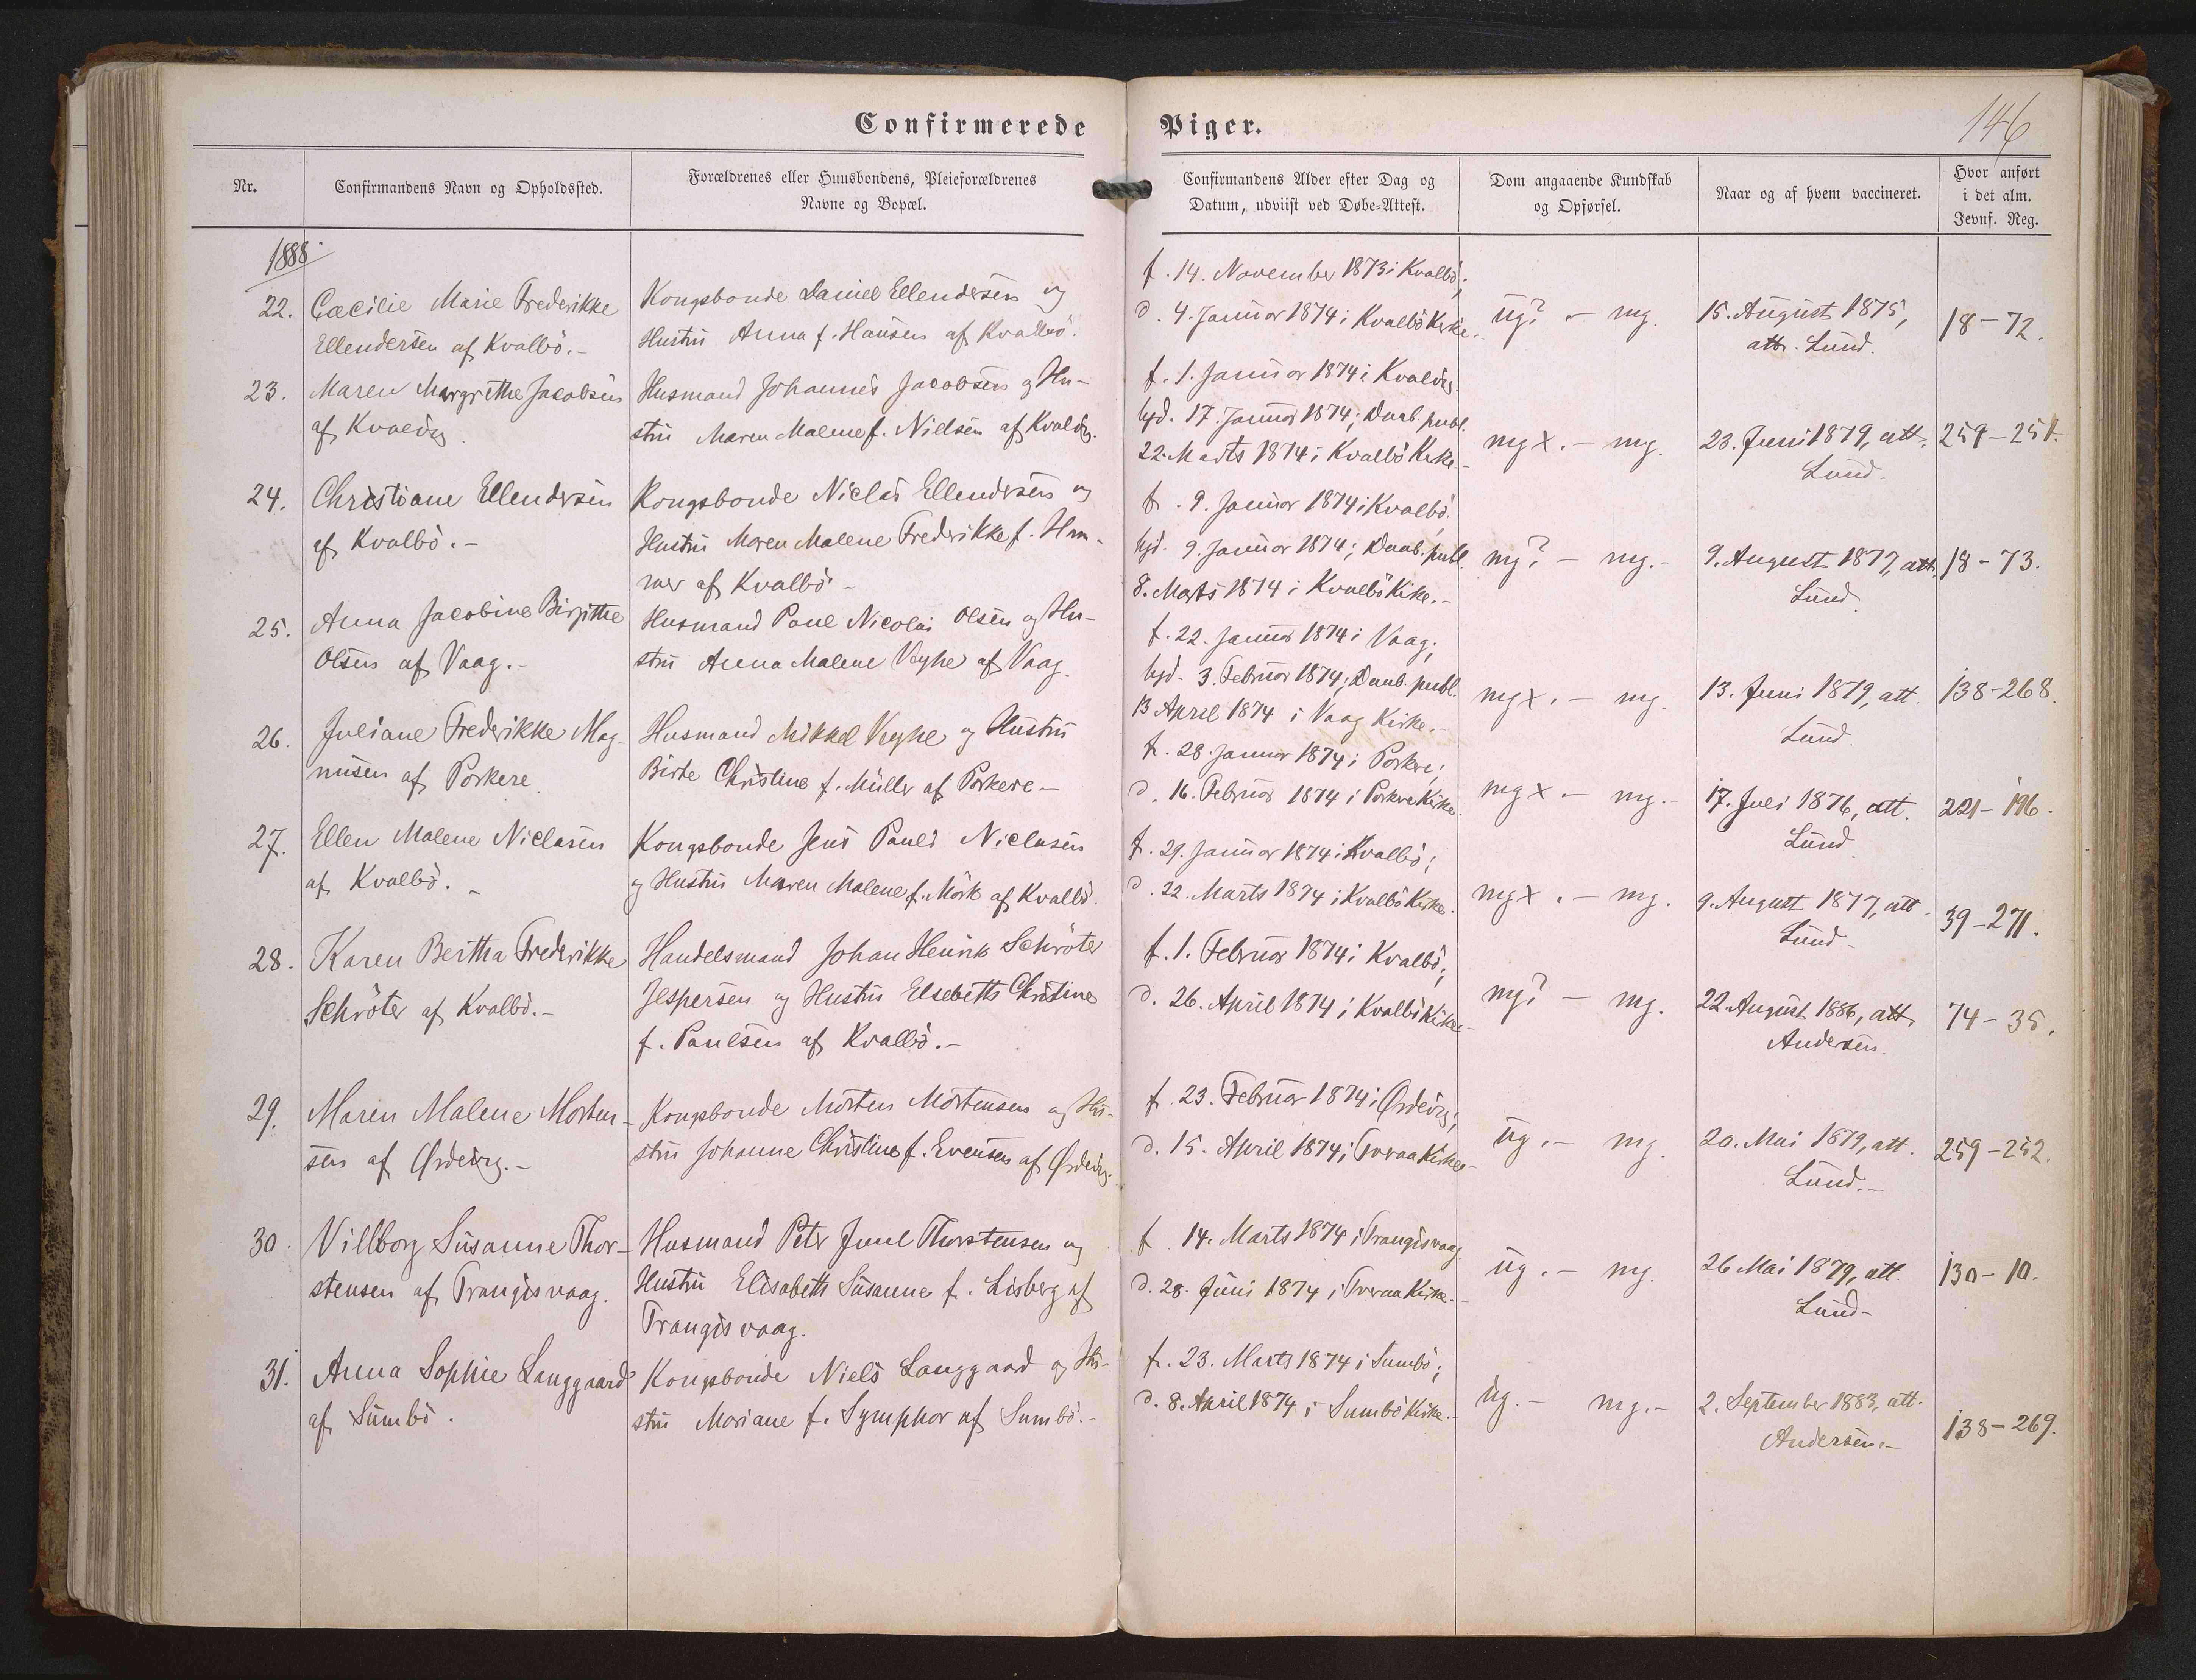 Confirmerede Piger.
146
Nr.
Confirmandens Navn og Opholdssted.
Forældrenes eller Huusbondens, Pleieforældrenes
Navne og Bopæl.
Confirmandens Alder efter Dag og
Datum, udviist ved Døbe-Attest.
Dom angaaende Kundskab
og Opførsel.
Naar og af hvem vaccineret.
Hvor anført
i det alm.
Jevnf. Reg.
1888.
22.
Cæcilie Marie Frederikke
Ellendersen af Kvalbö.-
Kongsbonde Daniel Ellendersen og
Hustru Anna f. Hansen af Kvalbö.
f. 14. November 1873 i Kvalbö;
d. 4. Januar 1874 i Kvalbö Kirke.
ug? - mg.
15. August 1875,
att. Lund.
18-72.
23.
Maren Margrethe Jacobsen
af Kvalvig
Husmand Johannes Jacobsen og Hu-
stru Maren Malene f. Nielsen af Kvalvig.
f. 1. Januar 1874 i Kvalvig.
hjd. 17. Januar 1874; Daab. publ.
22. Marts 1874 i Kvalbö Kirke.-
mgx. - mg.
23. Juni 1879, att.
Lund.
259-251.
24.
Christiane Ellendersen
af Kvalbö.-
Kongsbonde Niclas Ellendersen og
Hustru Maren Malene Frederikke f. Ham-
mer af Kvalbö-
f. 9. Januar 1874 i Kvalbö.
hjd. 9. Januar 1874; Daab. publ.
8. Marts 1874 i Kvalbö Kirke.-
mg? - mg.-
9. August 1877, att.
Lund.
18-73.
25.
Anna Jacobine Birgitthe
Olsen af Vaag.-
Husmand Poul Nicolai Olsen og Hu-
stru Anna Malene Veyhe af Vaag.
f. 22. Januar 1874 i Vaag;
hjd. 3. Februar 1874; Daab. publ.
13 April 1874 i Vaag Kirke.-
mgx. - mg.
13. Juni 1879, att.
Lund.
138-268.
26.
Juliane Frederikke Mag-
nusen af Porkere.
Husmand Mikkel Veyhe og Hustru
Birte Christine f. Müller af Porkere-
f. 28. Januar 1874 i Porkere;
d. 16. Februar 1874 i Porkere Kirke.
mgx - mg.-
17. Juli 1876, att.
Lund.
221-196.
27.
Ellen Malene Niclasen
af Kvalbö.-
Kongsbonde Jens Pauli Niclasen
og Hustru Maren Malene f. Mörk af Kvalbö.
f. 29. Januar 1874 i Kvalbö;
d. 22. Marts 1874 i Kvalbö Kirke.
mgx. - mg.
9. August 1877, att.
Lund-
39-271.
28.
Karen Bertha Frederikke
Schröter af Kvalbö.-
Handelsmand Johan Henrik Schröter
Jespersen og Hustru Elsebeth Christine
f. Paulsen af Kvalbö.-
f. 1. Februar 1874 i Kvalbö;
d. 26. April 1874 i Kvalbö Kirke-
mg? - mg.
22. August 1886, att.
Andersen.
74-35.
29.
Maren Malene Morten-
sen af Ørdevig.-
Kongsbonde Morten Mortensen og Hu-
stru Johanne Christine f. Evensen af Ørdevig.
f. 23. Februar 1874 i Ørdevig;
d. 15. April 1874 i Tveraa Kirke-
ug.- mg.
20. Mai 1879, att.
Lund.-
259-252.
30.
Villborg Susanne Thor-
stensen af Trangisvaag.
Husmand Peter Juul Thorstensen og
Hustru Elisabeth Susanne f. Lisberg af
Trangisvaag.
f. 14. Marts 1874 i Trangisvaag.
d. 28. Juni 1874 i Tveraa Kirke.-
ug.- mg.
26 Mai 1879, att.
Lund-
130-10.
31.
Anna Sophie Langgaard
af Sumbö.
Kongsbonde Niels Langgaard og Hu-
stru Mariane f. Symphor af Sumbö.-
f. 23. Marts 1874 i Sumbö;
d. 8. April 1874 i Sumbö Kirke.-
ug.- mg.-
2. September 1883, att.
Andersen.-
138-269.